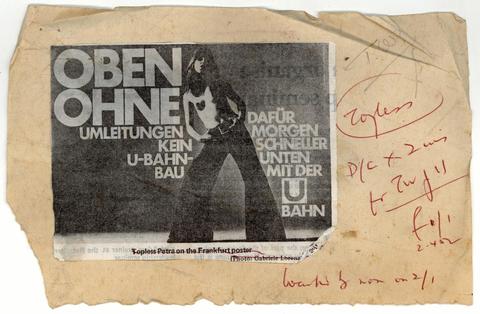 OBEN
OHNE
UMLEITUNGEN
KEIN
U-BAHN-
BAU
DAFÜR
MORGEN
SCHNELLER
UNTEN
MIT DER
U
BAHN
Topless Petra on the Frankfurt poster
(Photo: Gabriele Lorenz
Topless
D/C x 2 ins
for Aug 11
Wanted by noon on 2/1